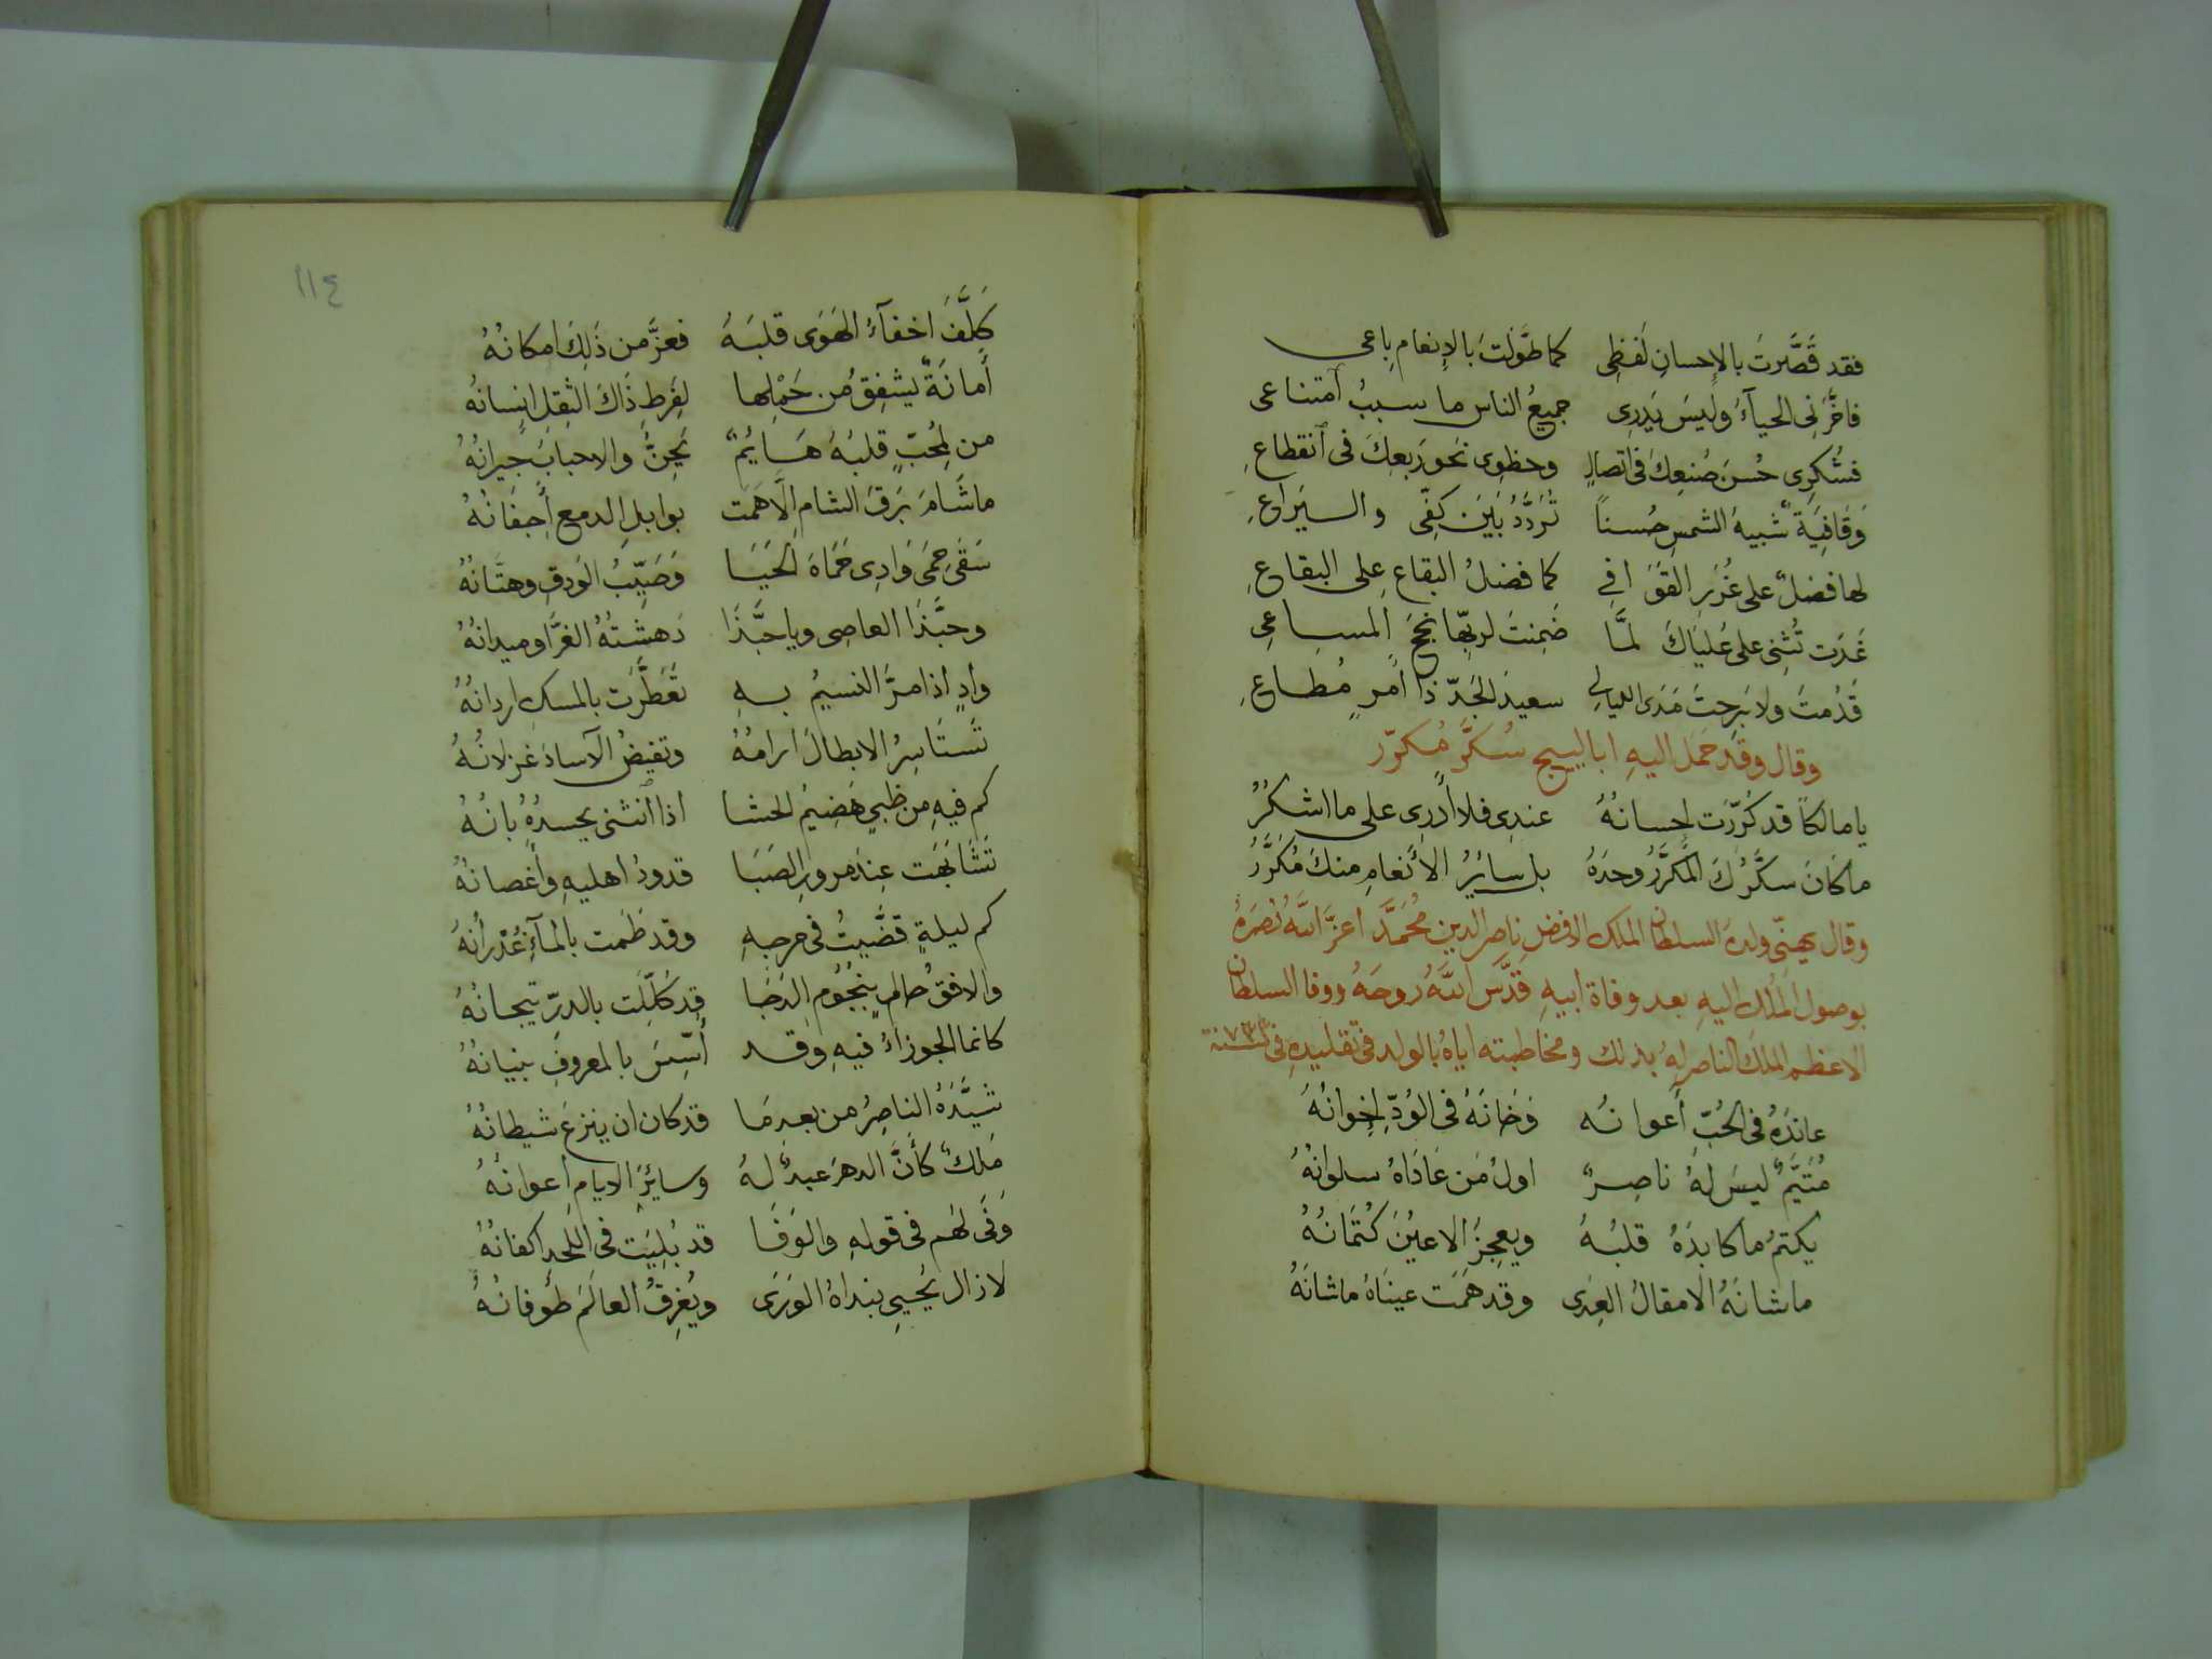 فقد قَصَّرتَ بالإحسانِ لَفظِى كما طَوَّلتَ بالإنعامِ باعى
فاخَّرَنِى الحيآءُ ولَيسَ يَدرِى جميعُ الناس ما سببُ آمتناعى
فشُكرِى حُسنَ صُنعِكَ فى اتصالٍ وخطوِى نحوَ رَبعِكَ فى أنقطاعِ
وَقَافِيَةٌ شبيهَ الشمسِ حُسناً تُرَدَّدُ بَينَ كَفّى واليَراعِ
لها فضلٌ على غُرَرِ القوَافِى كما فضلُ البقاعِ على البقاعِ
غَدَت تُثنِى على عُليَاكَ لمَّا ضَمِنتَ لربِّها نُجحَ المساعِى
قَدُمتَ ولا بَرِحتَ مَدَى الليالِى سعيدَ الجَدّ ذا أمرٍ مُطاعِ
وقال وقد حَمَل اليهِ اباليج سُكَّر مُكَرّر
يا مالكاً قد كُرّرَت إحسانُهُ عندى فلا أدرِى على ما اشكُرُ
ما كانَ سكَّرُكَ المكَرَّرُ وحدَهُ بل سائِرُ الأنعامِ منكَ مُكَرَّرُ
وقال يهنّى ولدَهُ السلطان الملك الافضل ناصر الدين مُحَمَّد اعزَّ اللهُ نُصرَهُ
بوصول المُلكِ اليهِ بعد وفاة ابيهِ قَدَّسَ اللهُ رُوحَهُ ووفا السلطان
الاعظم الملك الناصر لهُ بذلك ومخاطبته اياهُ بالولد فى تقليدهِ فى سنة ٧٣٢
عاندَهُ فى الحُبّ أعوانُه وَخَانَهُ فى الوُدّ إخوانُهُ
مُتيَّمٌ ليسَ لهُ ناصِرٌ اولُ مَن عَادَاهُ سلوانُهُ
يكتمُ ما كابدَهُ قلبُهُ ويعجِزُ الاعيُنَ كُتمَانُهُ
ما شانَهُ الّا مقالُ العِدَى وقد هَمَت عينَاهُ ما شانَهُ
١١٤
كُلِّفَ اخفآءُ الهَوَى قلبَهُ فعزَّ من ذَلِكَ امكانُهُ
أمانَةٌ يشفِقُ من حَمْلِها لِفَرطِ ذَاكَ الثِقلِ إنسانُهُ
من لمُحبٍّ قلبُهُ هَايُمٌ يَحِنُّ والاحبابُ جيرانُهُ
ما شَامَ بَرقَ الشامِ الّا هَمَت بوابلِ الدمعِ أجفانُهُ
سَقَى حِمَى وَادِى حَمَاةَ الحَيَا وَصَيِّبُ الوَدقِ وهتَّانُهُ
وحبَّذَا العاصِى ويا حبَّذَا دَهشَتُهُ الغرَّا وميدانُهُ
وادٍ اذا مرَّ النسيمُ بهِ تعَطَّرَت بالمسكِ اردانُهُ
تَستَاسِرُ الابطالَ ارامُهُ وتقنِصُ الآسادَ غزلانُهُ
كم فيهِ من ظبىٍ هَضِيمُ الحشا اذا انثنى يحسدُهُ بانُهُ
تَشَابَهَت عِندَ مرورِ الصَبَا قدودُ اهليهِ وأغصانُهُ
كم ليلةٍ قضَّيتُ فى مرجهِ وقد طَمت بالمآءِ غُدْرانُهُ
والافقُ حالٍ بنجُومِ الدَجَا قد كُلِّلَت بالدرِّ تيجانُهُ
كانما الجوزاءُ فيهِ وقد أُسّسَ بالمعروفِ بنيانُهُ
شيَّدَهُ الناصِرُ من بعدِ مَا قد كان ان ينزغَ شيطانُهُ
مَلكٌ كأنَّ الدهرَ عبدٌ لهُ وسايرُ الايامِ أعوانُهُ
وَفَى لهُم فى قولهِ والوَفَا قد بُلِيَت فى اللَحدِ اكفانُهُ
لا زال يُحيِى بنداهُ الوَرَى ويُغرِقُ العالَمَ طُوفانُهُ